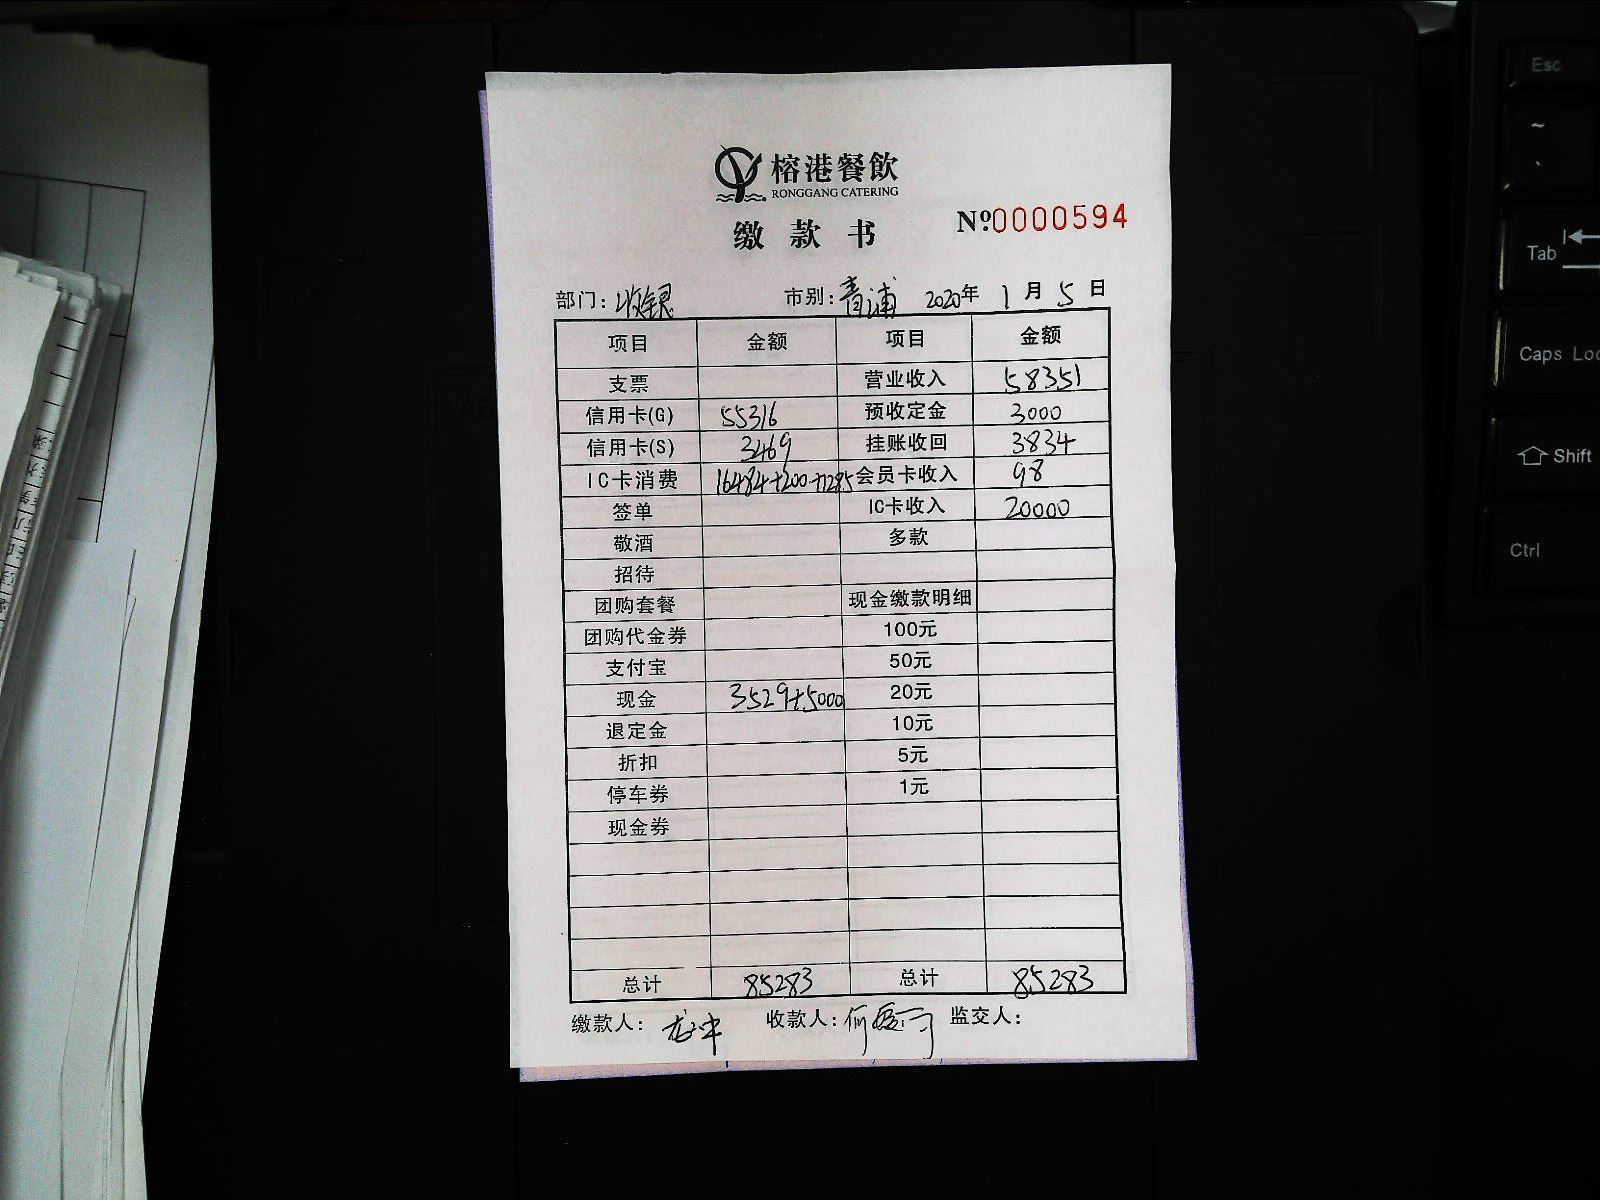 榕港餐飲
RONGGANG CATERING
缴款书
Nº0000594
部门: 收银 市别: 青浦 2020年 1月 5日
项目 金额 项目 金额
支票 营业收入 58351
信用卡(G) 55316 预收定金 3000
信用卡(S) 3469 挂账收回 3834
IC卡消费 16484+200+1285 会员卡收入 98
签单 IC卡收入 20000
敬酒 多款
招待
团购套餐 现金缴款明细
团购代金券 100元
支付宝 50元
现金 3529+5000 20元
退定金 10元
折扣 5元
停车券 1元
现金券
总计 85283 总计 85283
缴款人: 收款人: 何 监交人:
Esc
~
Tab
Caps Loc
Shift
Ctrl